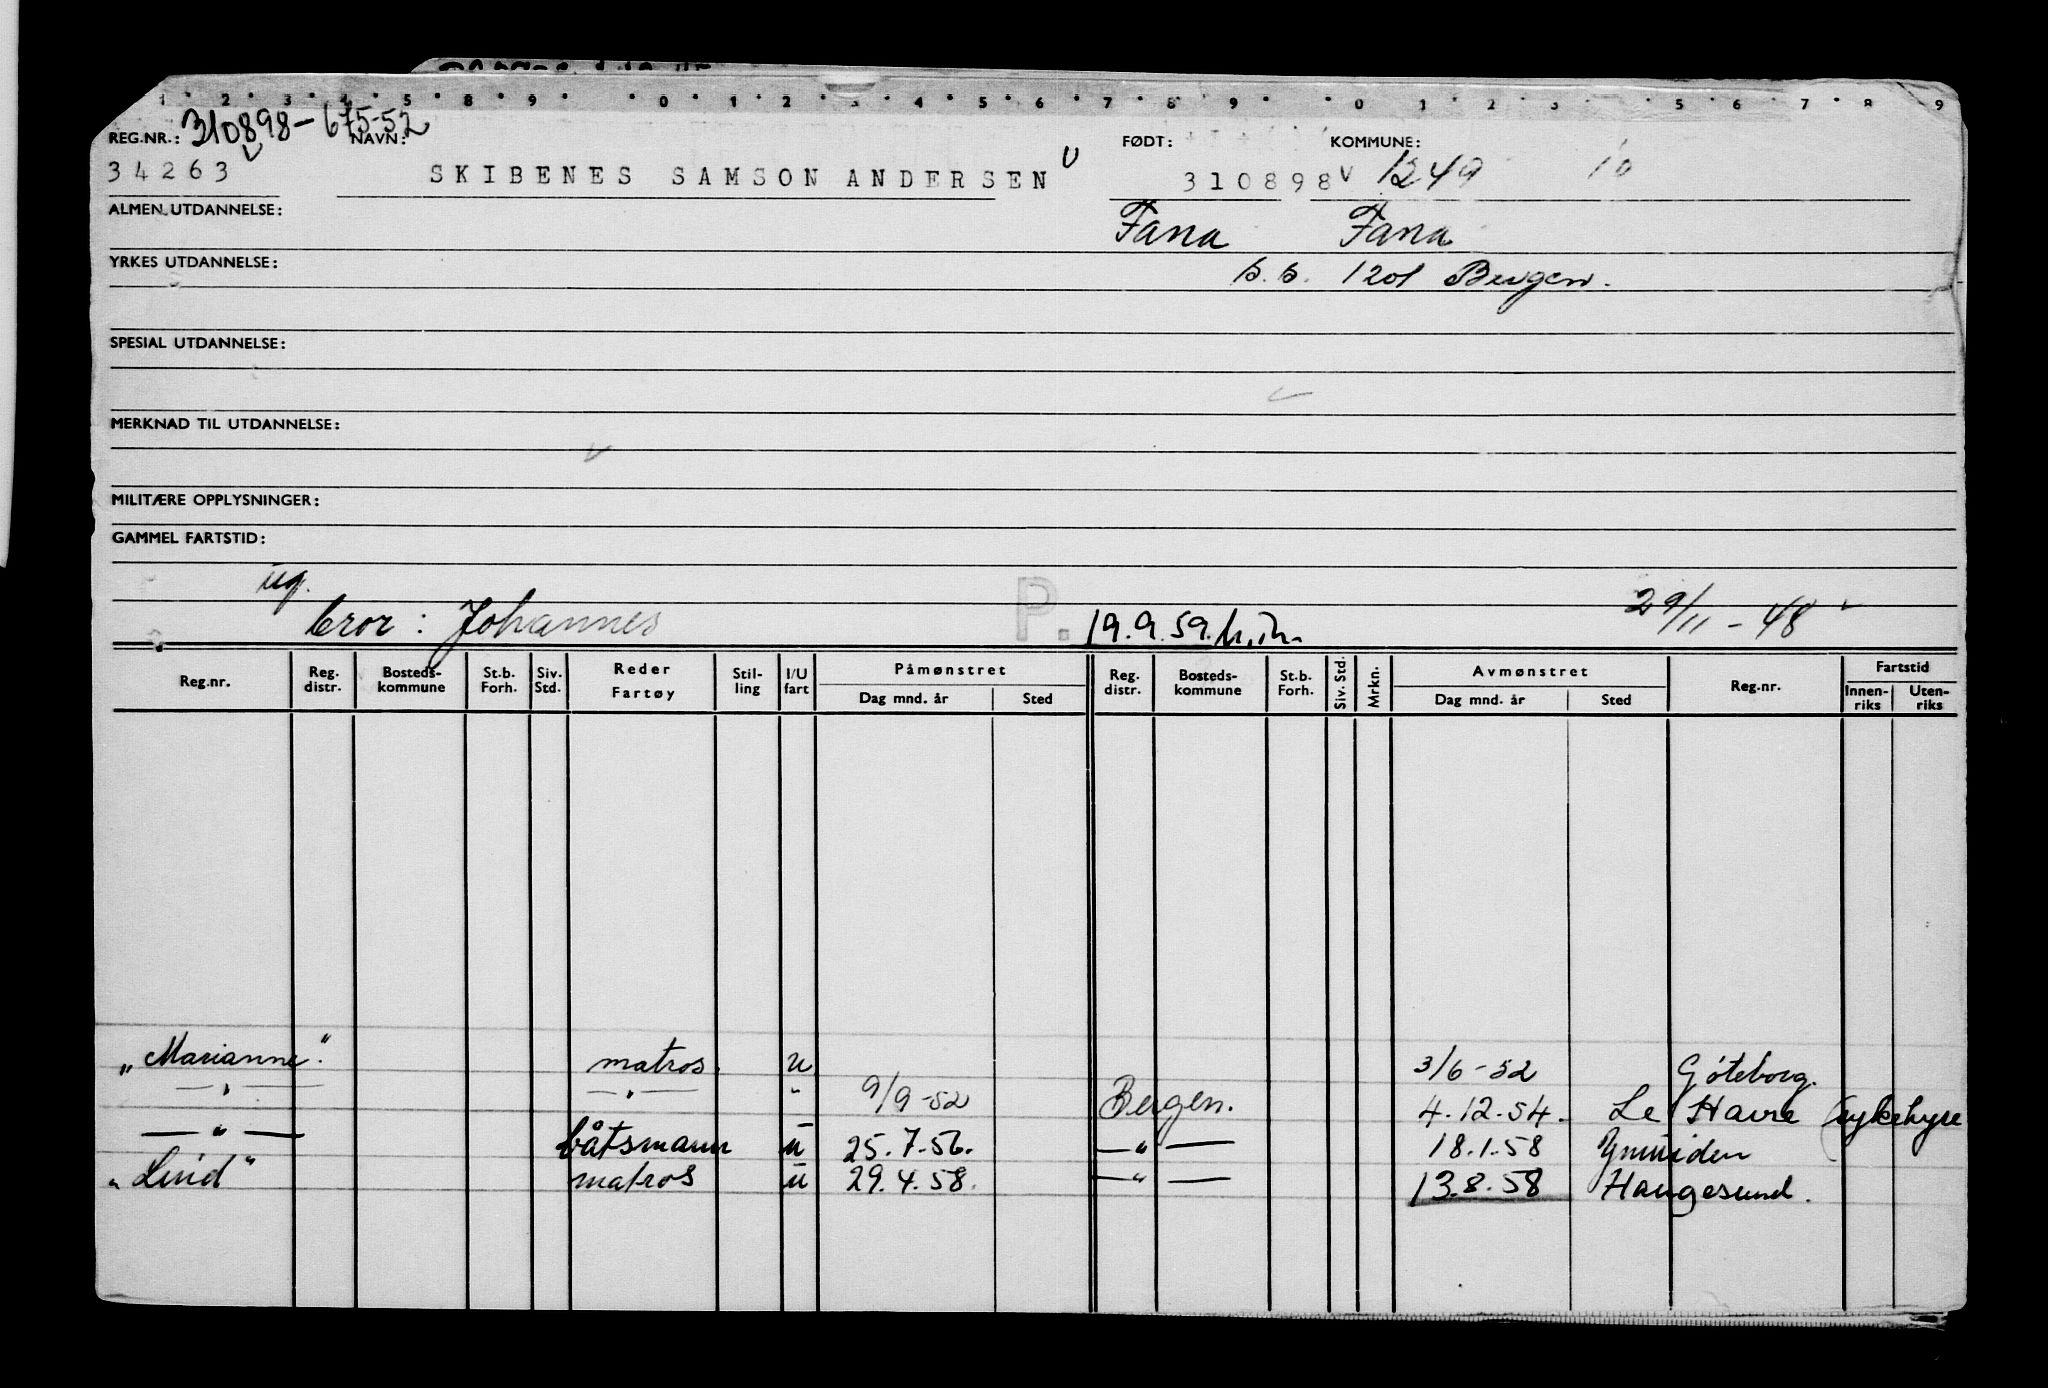 1 2 3 4 5 8 9 0 1 2 3 4 5 6 7 8 9 0 1 2 3 5 6 7 8 9
REG.NR.: 310898-675-52 NAVN: FØDT: KOMMUNE:
34263 SKIBENES SAMSON ANDERSEN 310898 1249 10
ALMEN UTDANNELSE: Fana Fana
YRKES UTDANNELSE: b.b. 1201 Bergen.
SPESIAL UTDANNELSE:
MERKNAD TIL UTDANNELSE:
MILITÆRE OPPLYSNINGER:
GAMMEL FARTSTID:
ug.
bror: Johannes P. 19.9.59. 29/11-48
Reg.nr. Reg. distr. Bosteds-kommune St.b. Forh. Siv. Std. Reder Fartøy Stil-ling I/U fart Påmønstret Dag mnd. år Sted Reg. distr. Bosteds-kommune St.b. Forh. Siv. Std. Mrkn. Avmønstret Dag mnd. år Sted Reg.nr. Fartstid Innen-riks Uten-riks
„Marianne" matros. u 3/6-52 Göteborg.
— " — — " — " 9/9-52 Bergen. 4.12.54. Le Havre (sykehyre
— " — båtsmann u 25.7.56. — " — 18.1.58 Ymuiden
„Lind" matros u 29.4.58. — " — 13.8.58 Haugesund.